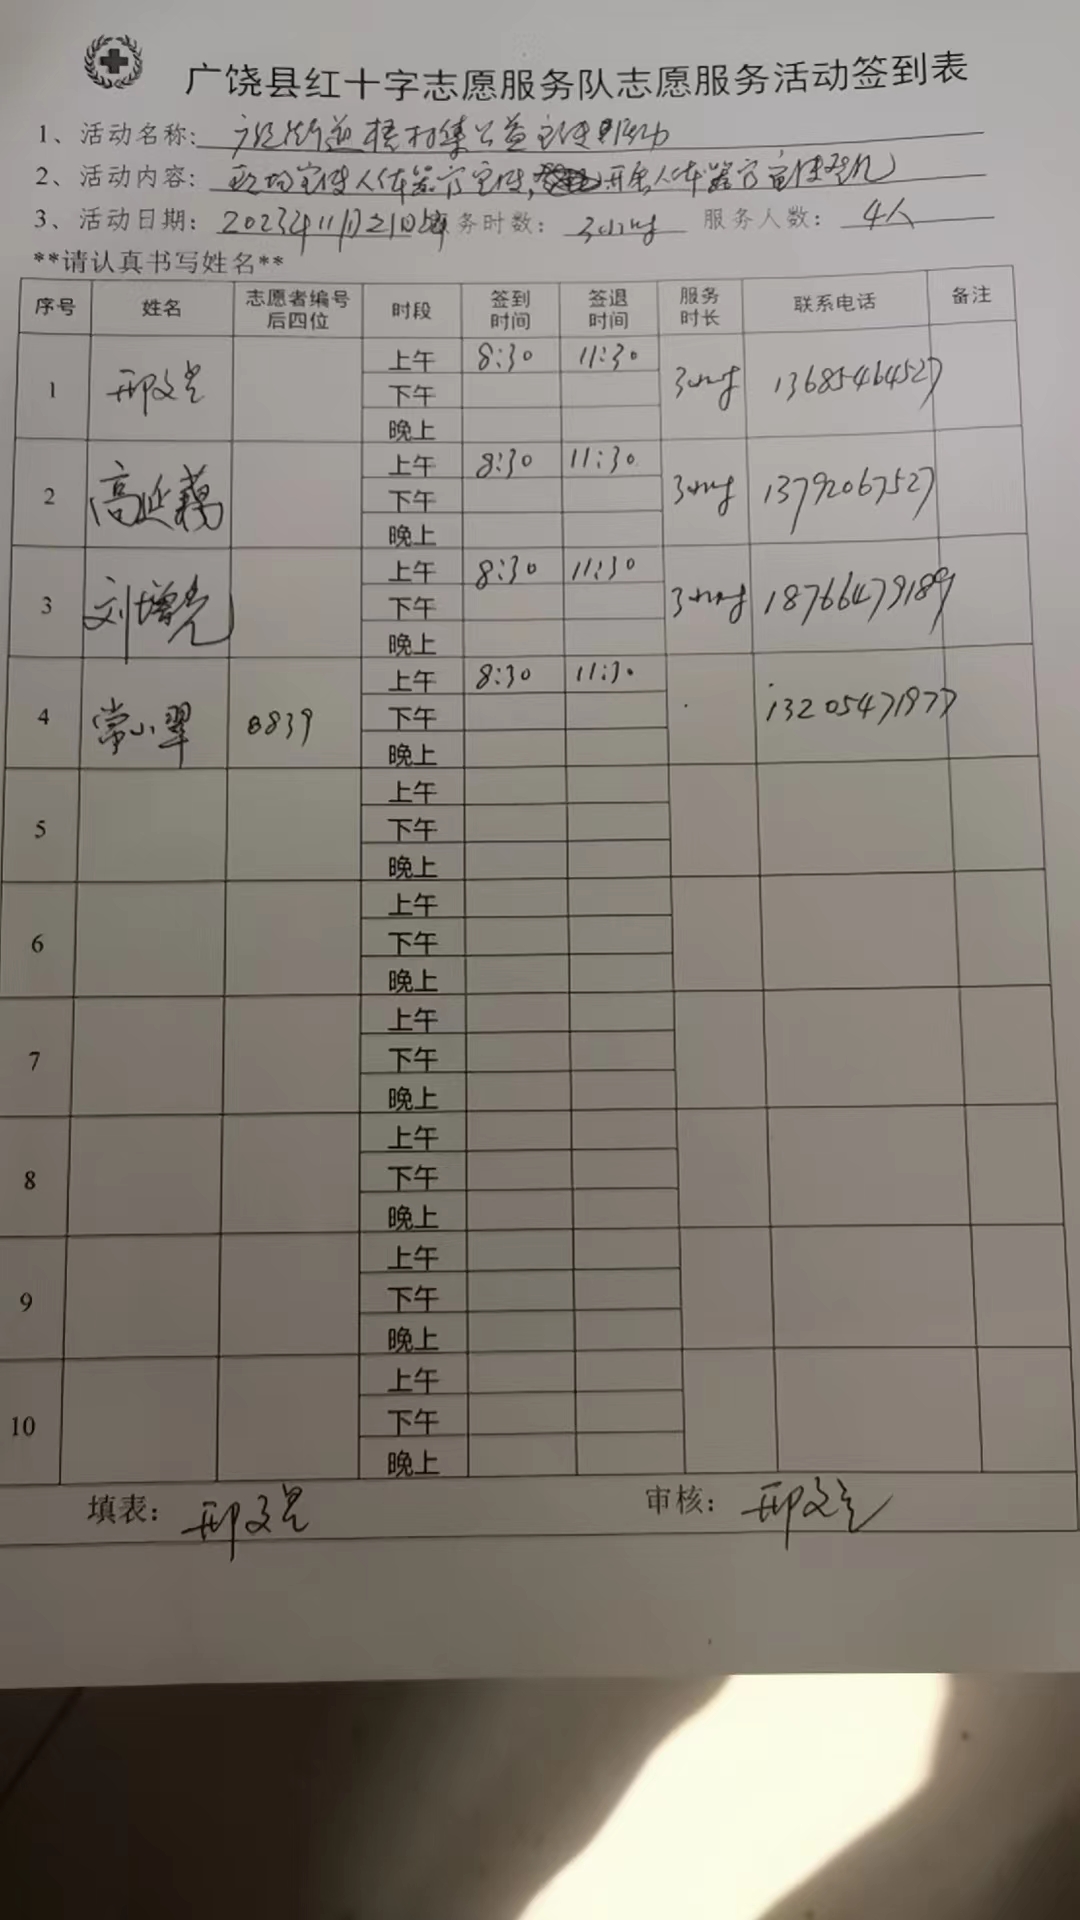 广饶县红十字志愿服务队志愿服务活动签到表
1、活动名称: 街道 村集公益宣传活动
2、活动内容: 现场宣传人体器官宣传, 开展人体器官宣传
3、活动日期: 2023年11月21日 服务时数: 3小时 服务人数: 4人
**请认真书写姓名**
序号 姓名 志愿者编号后四位 时段 签到时间 签退时间 服务时长 联系电话 备注
1 邢文 上午 8:30 11:30 3小时 13685464527
下午
晚上
2 高延 上午 8:30 11:30 3小时 13792067527
下午
晚上
3 刘增光 上午 8:30 11:30 3小时 18766479189
下午
晚上
4 常小翠 0839 上午 8:30 11:30 13205471977
下午
晚上
5 上午
下午
晚上
6 上午
下午
晚上
7 上午
下午
晚上
8 上午
下午
晚上
9 上午
下午
晚上
10 上午
下午
晚上
填表: 邢文 审核: 邢文